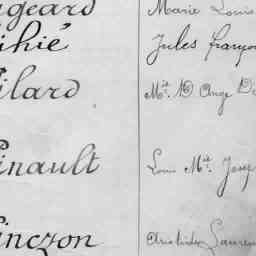 geard Marie Louis
ihié Jules françoi
ilard Mie D Ange D
inault Louis Mie Josep
inczon Aristides Lauren